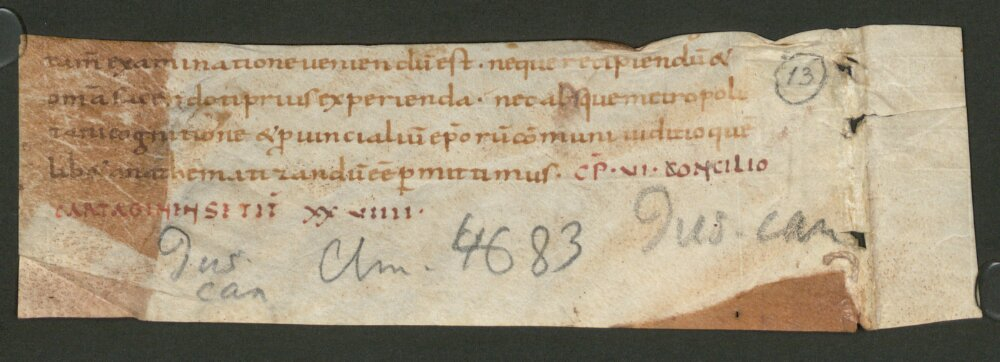 tam̄ examinatione veniendū est · neque recipiendū &
omā sacerdoti prius experienda · nec absque metropoli
tani cognitione & p̱uincialiū ep̄orū cōmuni iuditio quē
liba& anathematizandū eē p̱mittimus · CP̄ · VI · CONCILIO
CARTAGININSE TIT̄ XXVIIII ·
13
Jus. can
Clm. 4683
Jus. can